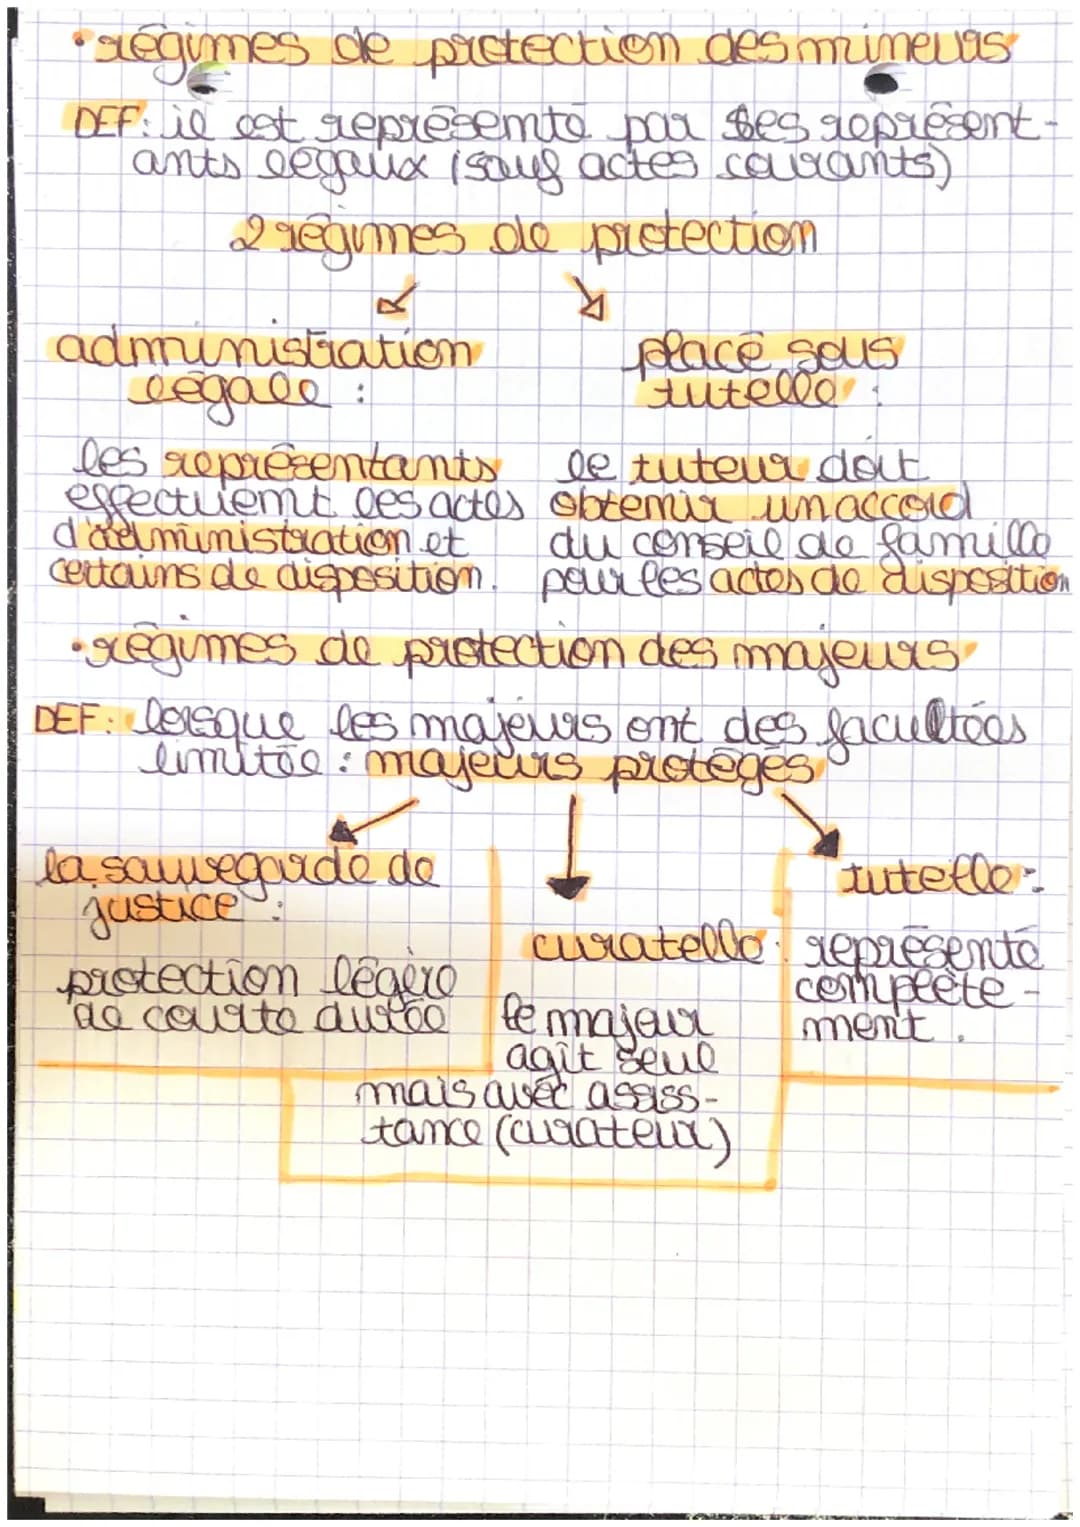 • régimes de protection des mineurs
DEF: il est représenté par ses représent-
ants légaux (sauf actes courants)
2 régimes de protection
administration
légale :
les représentants
effectuent les actes
d'administration et
certains de disposition.
placé sous
tutelle :
le tuteur doit
obtenir un accord
du conseil de famille
pour les actes de disposition
• régimes de protection des majeurs
DEF: lorsque les majeurs ont des facultées
limitée : majeurs protégés
la sauvegarde de
justice :
protection légère
de courte durée
curatelle :
le majeur
agit seul
mais avec assiss-
tance (curateur)
tutelle :
représenté
complète-
ment.